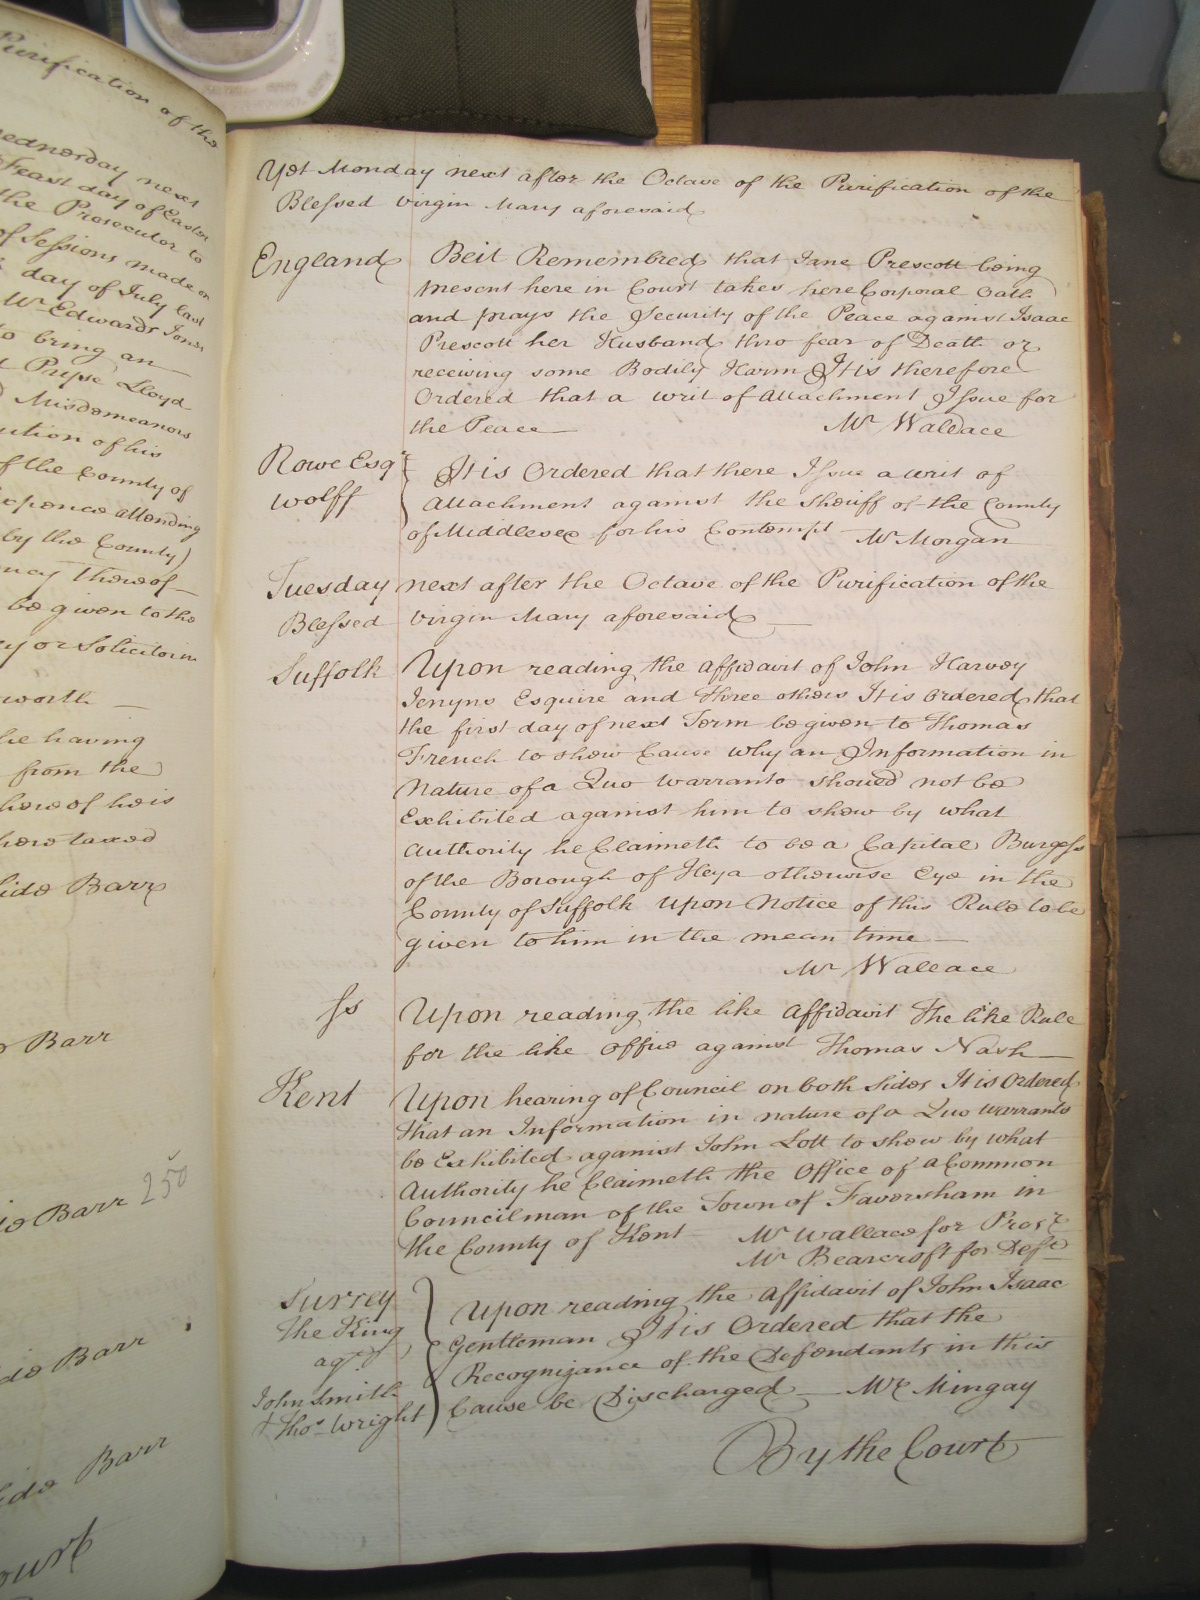 Purification of the
Wednesday next
Feast day of Easter
the Prosecutor to
of Sessions made on
day of July last
Mr Edwards Jones
to bring an
Pryse Lloyd
Misdemeanors
of his
of the County of
attending
by the County)
thereof
be given to the
or Solicitor
worth
he having
from the
thereof he is
taxed
Side Barr
Barr
Barr 250
Barr
Side Barr
Court
Yet Monday next after the Octave of the Purification of the
Blessed Virgin Mary aforesaid
England Beit Remembred that Jane Prescott being
present here in Court takes here Corporal Oath
and prays the Security of the Peace against Isaac
Prescott her Husband thro fear of Death or
receiving some Bodily Harm It is therefore
Ordered that a writ of Attachment Issue for
the Peace Mr Wallace
Rowe Esqr It is Ordered that there Issue a writ of
Wolff Attachment against the Sheriff of the County
of Middlesex for his Contempt Mr Morgan
Tuesday next after the Octave of the Purification of the
Blessed Virgin Mary aforesaid
Suffolk Upon reading the Affidavit of John Harvey
Jenyns Esquire and Three others It is Ordered that
the first day of next Term be given to Thomas
French to show Cause why an Information in
Nature of a Quo Warranto should not be
Exhibited against him to show by what
Authority he Claimeth to be a Capital Burgess
of the Borough of Heya otherwise Eye in the
County of Suffolk Upon Notice of this Rule to be
given to him in the mean time
Mr Wallace
Ss Upon reading the like Affidavit The like Rule
for the like Office against Thomas Nash
Kent Upon hearing of Council on both Sides It is Ordered
that an Information in nature of a Quo Warranto
be Exhibited against John Lott to show by what
Authority he Claimeth the Office of a Common
Councilman of the Town of Faversham in
the County of Kent Mr Wallace for Prosr
Mr Bearcroft for Deft
Surrey
The King
agt
John Smith
& Thos Wright
Upon reading the Affidavit of John Isaac
Gentleman It is Ordered that the
Recognizance of the Defendants in this
Cause be Discharged Mr Mingay
By the Court